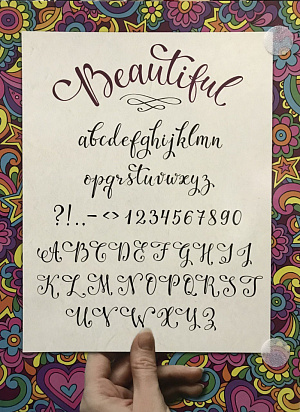 Beautiful
abcdefghijklmn
opqrstuvwxyz
?!..-<>1234567890
ABCDEFGHIJ
KLMNOPQRST
UVWXYZ